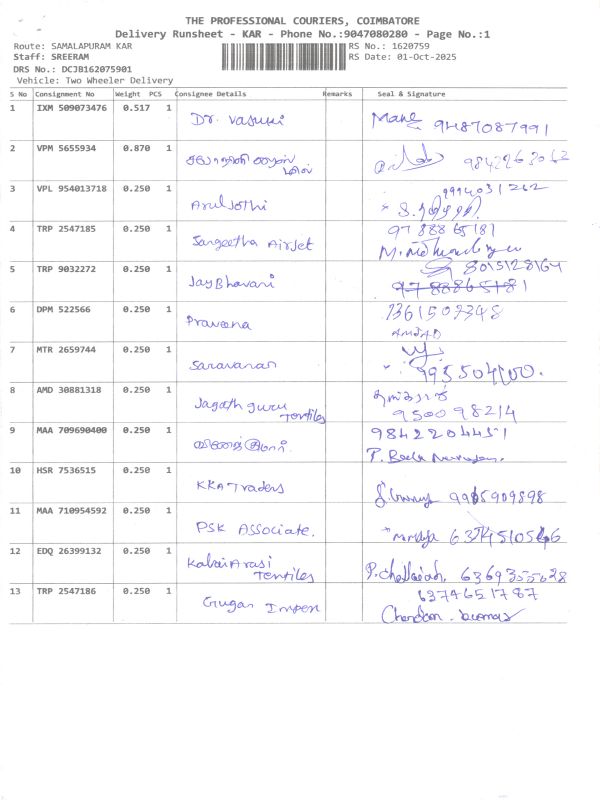 THE PROFESSIONAL COURIERS, COIMBATORE
Delivery Runsheet - KAR - Phone No.:9047080280 - Page No.:1
Route: SAMALAPURAM KAR RS No.: 1620759
Staff: SREERAM RS Date: 01-Oct-2025
DRS No.: DCJB162075901
Vehicle: Two Wheeler Delivery
S No Consignment No Weight PCS Consignee Details Remarks Seal & Signature
1 IXM 509073476 0.517 1 Dr. Vasuki 9487087991
2 VPM 5655934 0.870 1
3 VPL 954013718 0.250 1 Aruljothi 9994031262
4 TRP 2547185 0.250 1 Sangeetha Airjet 9788865181
5 TRP 9032272 0.250 1 JayBhavani 8015128164
9788865181
6 DPM 522566 0.250 1 Praveena 7361507348
7 MTR 2659744 0.250 1 Saravanan
8 AMD 30881318 0.250 1 Jagathguru
Textiles 9500098214
9 MAA 709690400 0.250 1 9842204451
10 HSR 7536515 0.250 1 KKA Traders 9965909898
11 MAA 710954592 0.250 1 PSK Associate.
12 EDQ 26399132 0.250 1 KalaiArasi
Textiles P.Chelladah 6369355628
13 TRP 2547186 0.250 1 Gugan Impex 6374651787
Chandan kumar